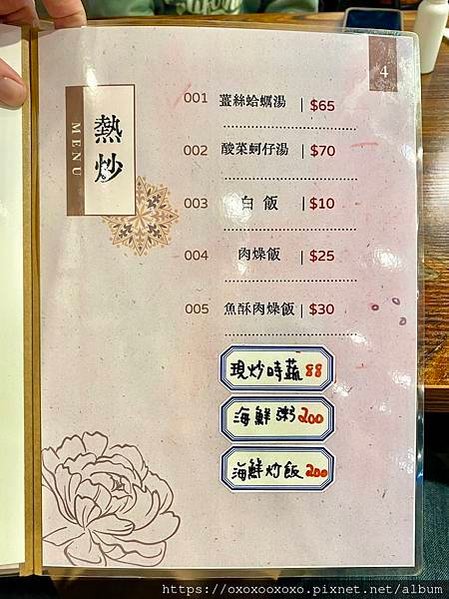 4
熱炒
MENU
001 薑絲蛤蠣湯 | $65
002 酸菜蚵仔湯 | $70
003 白飯 | $10
004 肉燥飯 | $25
005 魚酥肉燥飯 | $30
現炒時蔬 88
海鮮粥 200
海鮮炒飯 200
https://oxoxooxoxo.pixnet.net/album